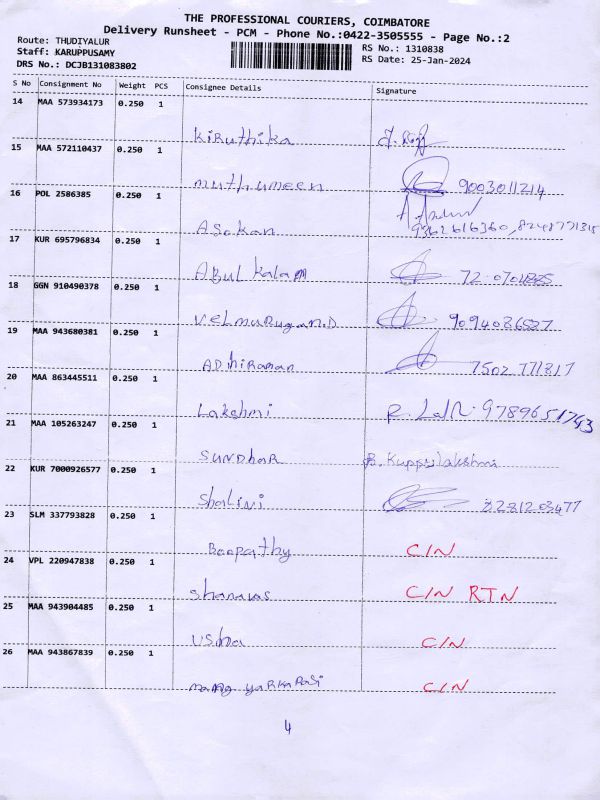 THE PROFESSIONAL COURIERS, COIMBATORE
Delivery Runsheet - PCM - Phone No.:0422-3505555 - Page No.:2
Route: THUDIYALUR RS No.: 1310838
Staff: KARUPPUSAMY RS Date: 25-Jan-2024
DRS No.: DCJB131083802
S No Consignment No Weight PCS Consignee Details Signature
14 MAA 573934173 0.250 1
Kiruthika
15 MAA 572110437 0.250 1
muthumeen 9003011214
16 POL 2586385 0.250 1
Asokan 9362616360, 8248771315
17 KUR 695796834 0.250 1
Abul kalam
18 GGN 910490378 0.250 1
Velmurugan.D 9094036527
19 MAA 943680381 0.250 1
ADhiraman 7502 771317
20 MAA 863445511 0.250 1
Lakshmi 9789651743
21 MAA 105263247 0.250 1
SUNDhaR B. Kuppulakshmi
22 KUR 7000926577 0.250 1
Shalini
23 SLM 337793828 0.250 1
Boopathy C/N
24 VPL 220947838 0.250 1
Shanavas C/N RTN
25 MAA 943904485 0.250 1
Usha C/N
26 MAA 943867839 0.250 1
C/N
4